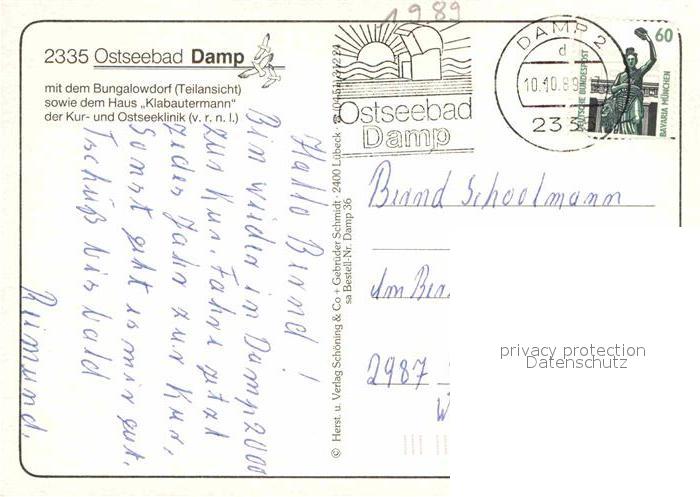 1989
2335 Ostseebad Damp
mit dem Bungalowdorf (Teilansicht)
sowie dem Haus „Klabautermann“
der Kur- und Ostseeklinik (v. r. n. l.)
Hallo Bernd!
Bin wieder in Damp 2000
zur Kur. Fahre jetzt
jedes Jahr zur Kur,
Sonst geht es mir gut.
Tschüß bis bald
Reimund.
© Herst. u. Verlag Schöning & Co + Gebrüder Schmidt · 2400 Lübeck
sa Bestell-Nr. Damp 36
Ostseebad
Damp
DAMP 2
d
10.10.89
233
60
DEUTSCHE BUNDESPOST
BAVARIA MÜNCHEN
Bernd Schoolmann
Am
2987
privacy protection
Datenschutz